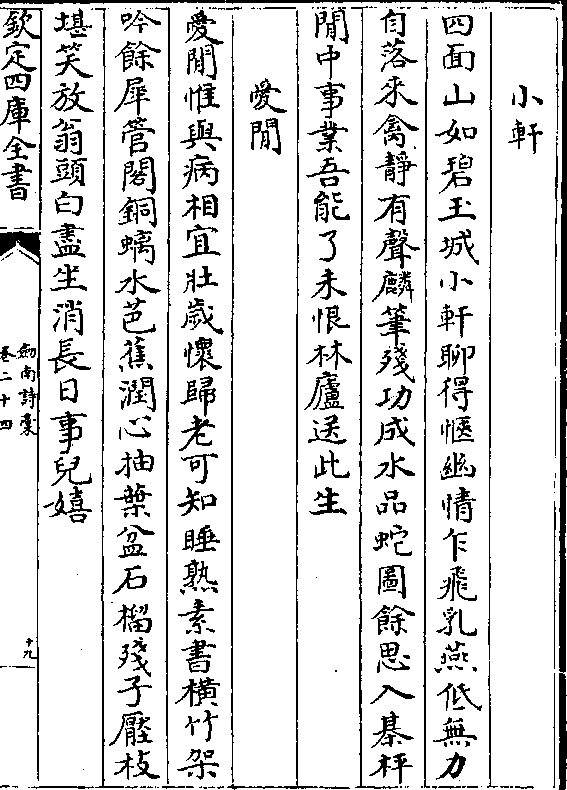 小軒
四面山如碧玉城小軒聊得愜幽情乍飛乳燕低無力
自落來禽靜有聲麟筆殘功成水品蛇圖餘思入棊枰
閒中事業吾能了未恨林廬送此生
愛閒
愛閒惟與病相宜壯歲懷歸老可知睡熟素書橫竹架
吟餘犀管閣銅螭水芭蕉潤心抽葉盆石榴殘子壓枝
堪笑放翁頭白盡坐消長日事兒嬉
欽定四庫全書
劒南詩稾
卷二十四
十九